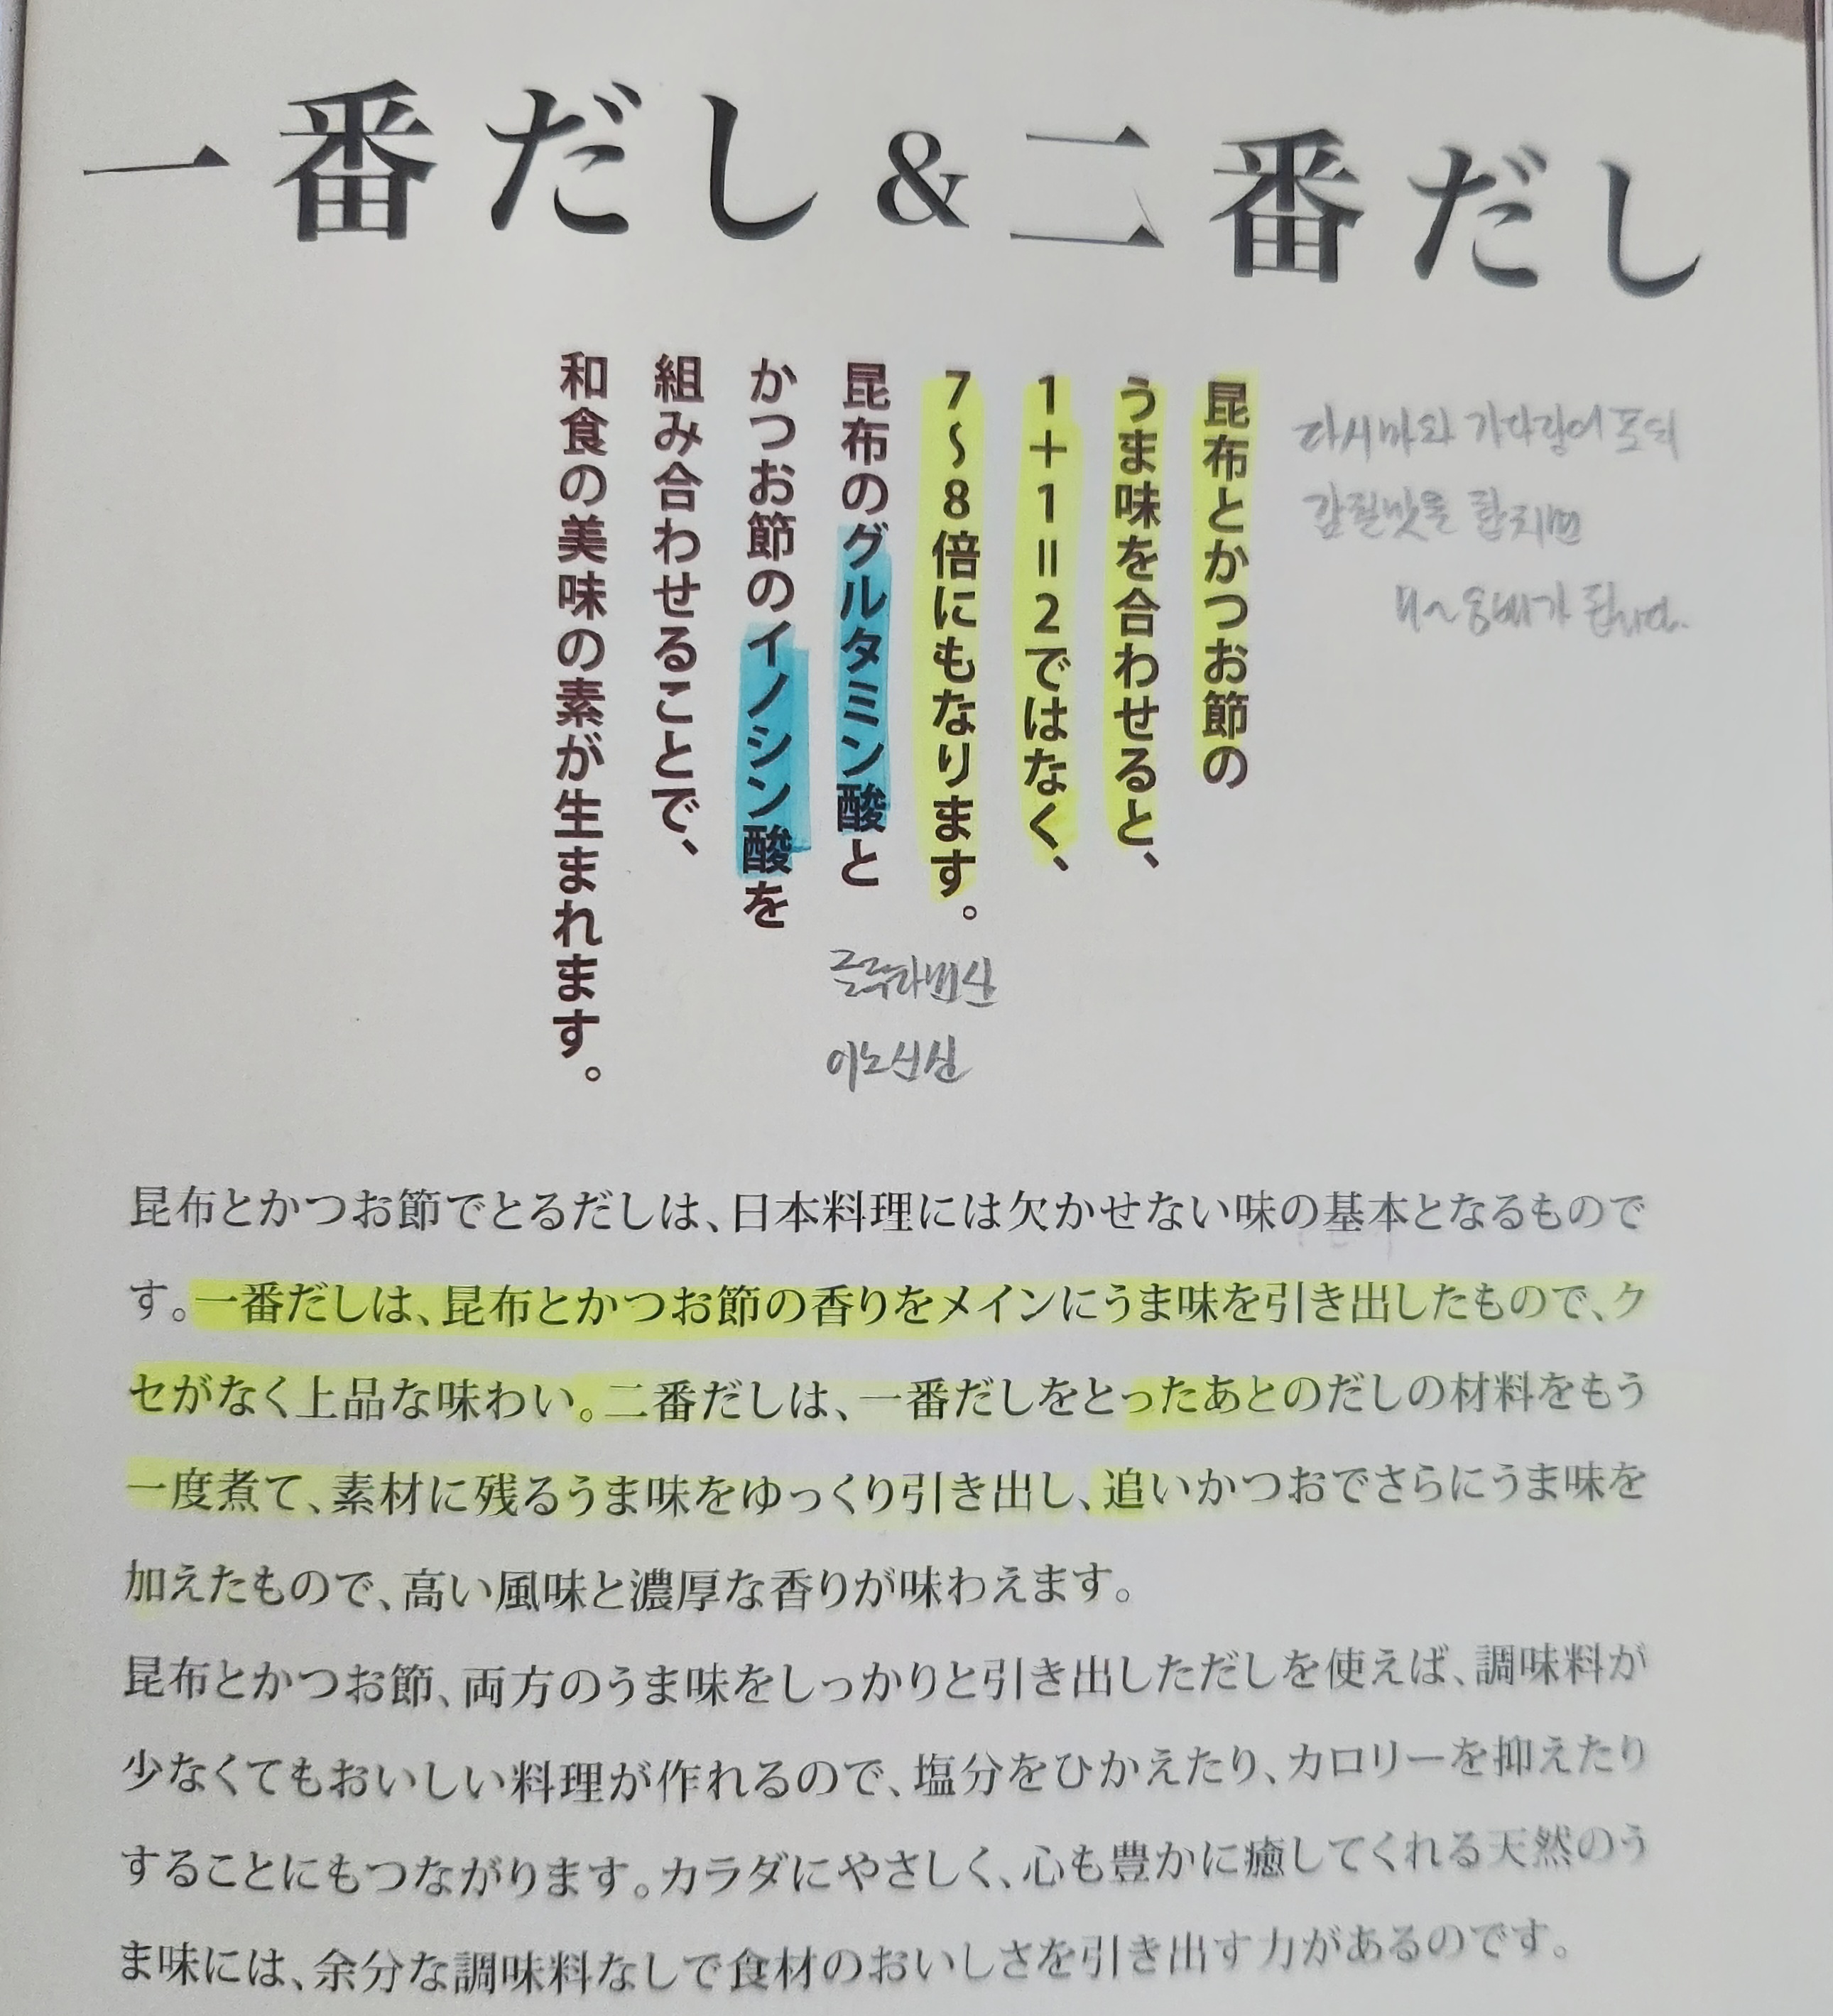 一番だし&二番だし
昆布とかつお節の
うま味を合わせると、
1+1=2ではなく、
7〜8倍にもなります。
昆布のグルタミン酸と
かつお節のイノシン酸を
組み合わせることで、
和食の美味の素が生まれます。
다시마와 가다랑어 포의
감칠맛을 합치면
7~8배가 됩니다.
글루타민산
이노신산
昆布とかつお節でとるだしは、日本料理には欠かせない味の基本となるもので
す。一番だしは、昆布とかつお節の香りをメインにうま味を引き出したもので、ク
セがなく上品な味わい。二番だしは、一番だしをとったあとのだしの材料をもう
一度煮て、素材に残るうま味をゆっくり引き出し、追いかつおでさらにうま味を
加えたもので、高い風味と濃厚な香りが味わえます。
昆布とかつお節、両方のうま味をしっかりと引き出しただしを使えば、調味料が
少なくてもおいしい料理が作れるので、塩分をひかえたり、カロリーを抑えたり
することにもつながります。カラダにやさしく、心も豊かに癒してくれる天然のう
ま味には、余分な調味料なしで食材のおいしさを引き出す力があるのです。